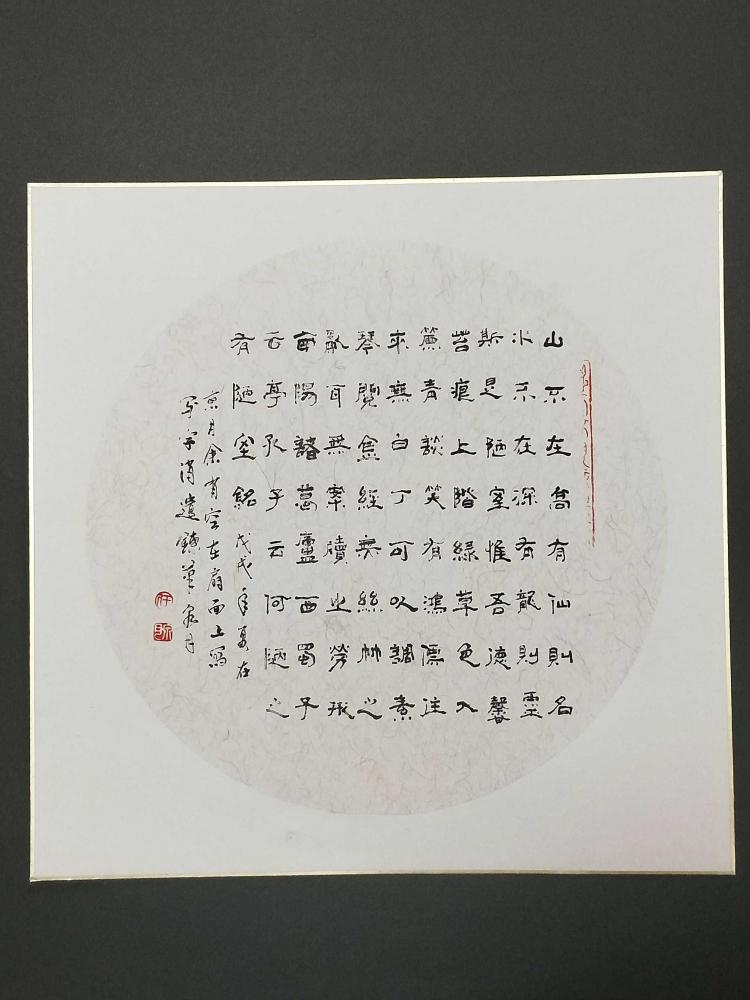 山不在高有仙則名
水不在深有龍則靈
斯是陋室惟吾德馨
苔痕上階綠草色入
簾青談笑有鴻儒往
來無白丁可以調素
琴閱金經無絲竹之
亂耳無案牘之勞形
南陽諸葛廬西蜀子
云亭孔子云何陋之
有陋室銘 戊戌年夏在
京月余有空在扇面上寫
写字消遣